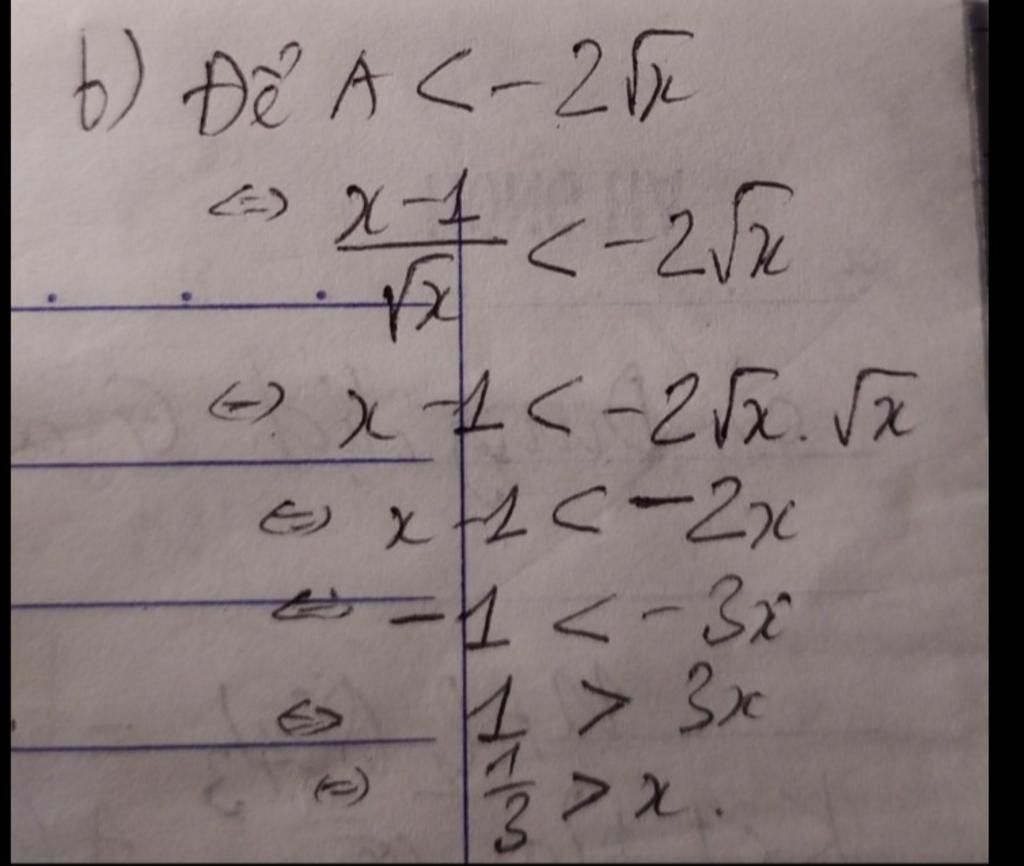 b) Để A < -2√x
⇔ x-1/√x < -2√x
⇔ x-1 < -2√x.√x
⇔ x-1 < -2x
⇔ -1 < -3x
⇔ 1 > 3x
⇔ 1/3 > x.